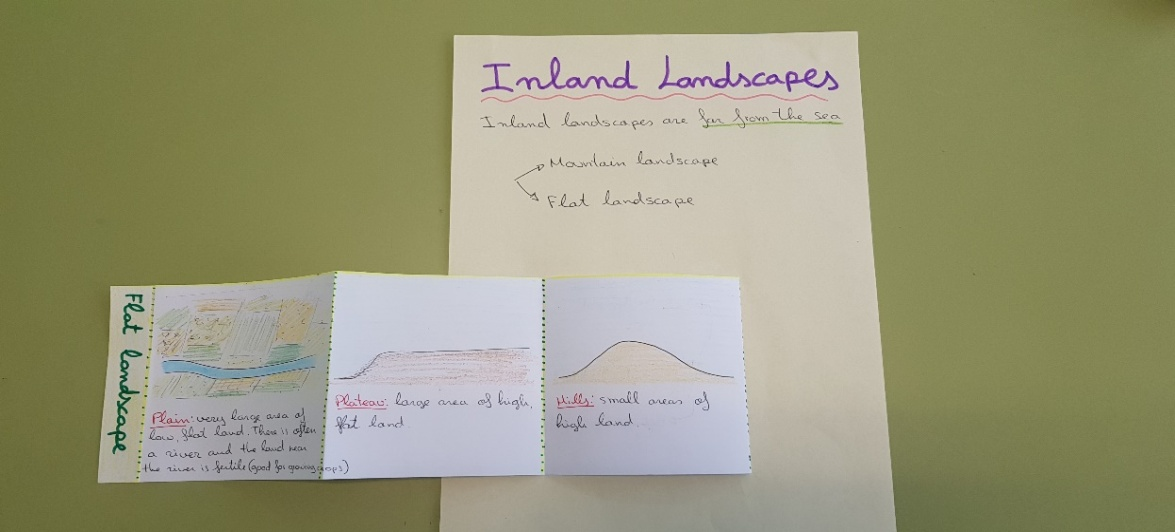 Inland Landscapes
Inland landscapes are far from the sea
Mountain landscape
Flat landscape
Flat landscape
Plain: very large area of
low, flat land. There is often
a river and the land near
the river is fertile (good for growing crops)
Plateau: large area of high,
flat land.
Hills: small areas of
high land.